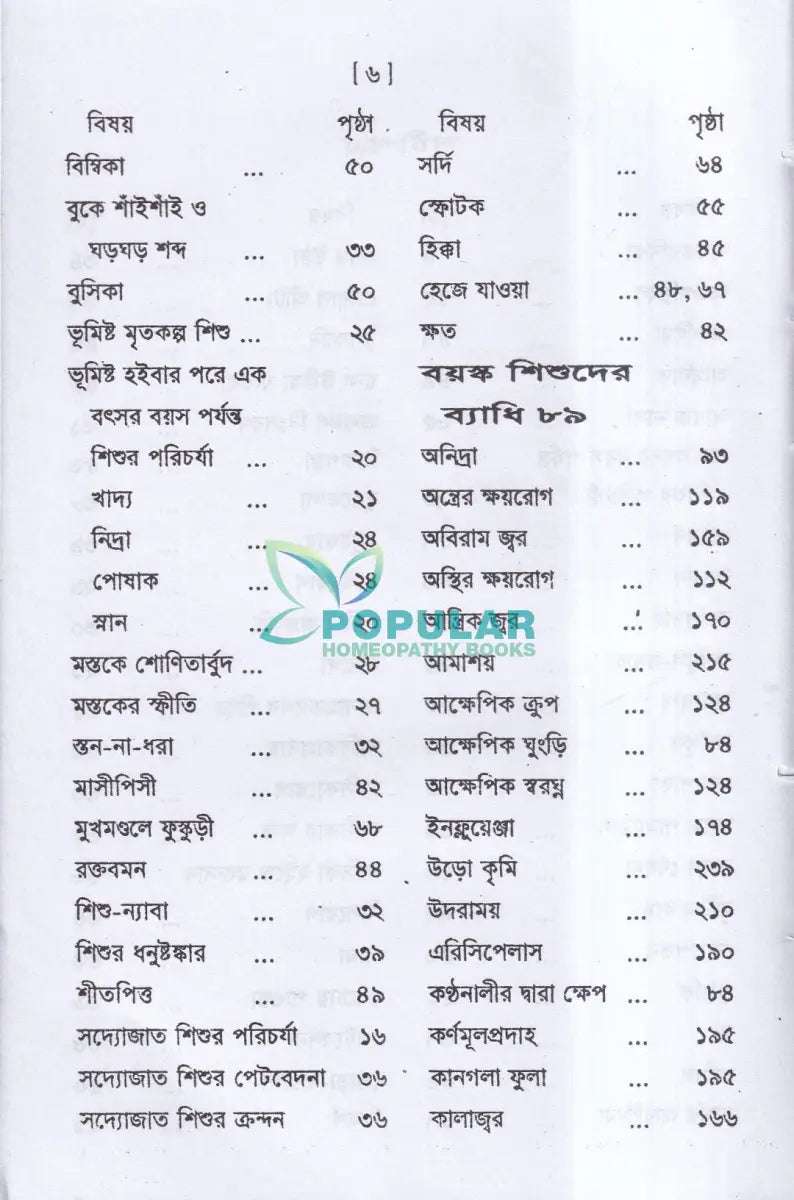 [ ৬ ]
বিষয় পৃষ্ঠা
বিম্বিকা ... ৫০
বুকে শাঁইশাঁই ও
ঘড়ঘড় শব্দ ... ৩৩
বুসিকা ... ৫০
ভূমিষ্ট মৃতকল্প শিশু ... ২৫
ভূমিষ্ট হইবার পরে এক
বৎসর বয়স পর্যন্ত
শিশুর পরিচর্যা ... ২০
খাদ্য ... ২১
নিদ্রা ... ২৪
পোষাক ... ২৪
স্নান ... ২০
মস্তকে শোণিতার্বুদ ... ২৮
মস্তকের স্ফীতি ... ২৭
স্তন-না-ধরা ... ৩২
মাসীপিসী ... ৪২
মুখমণ্ডলে ফুস্কুড়ী ... ৬৮
রক্তবমন ... ৪৪
শিশু-ন্যাবা ... ৩২
শিশুর ধনুষ্টঙ্কার ... ৩৯
শীতপিত্ত ... ৪৯
সদ্যোজাত শিশুর পরিচর্যা ১৬
সদ্যোজাত শিশুর পেটবেদনা ৩৬
সদ্যোজাত শিশুর ক্রন্দন ৩৬
বিষয় পৃষ্ঠা
সর্দি ... ৬৪
স্ফোটক ... ৫৫
হিক্কা ... ৪৫
হেজে যাওয়া ... ৪৮, ৬৭
ক্ষত ... ৪২
বয়স্ক শিশুদের
ব্যাধি ৮৯
অনিদ্রা ... ৯৩
অন্ত্রের ক্ষয়রোগ ... ১১৯
অবিরাম জ্বর ... ১৫৯
অস্থির ক্ষয়রোগ ... ১১২
আন্ত্রিক জ্বর ... ১৭০
আমাশয় ... ২১৫
আক্ষেপিক ক্রুপ ... ১২৪
আক্ষেপিক ঘুংড়ি ... ৮৪
আক্ষেপিক স্বরঘ্ন ... ১২৪
ইনফ্লুয়েঞ্জা ... ১৭৪
উড়ো কৃমি ... ২৩৯
উদরাময় ... ২১০
এরিসিপেলাস ... ১৯০
কণ্ঠনালীর দ্বারা ক্ষেপ ... ৮৪
কর্ণমূলপ্রদাহ ... ১৯৫
কানগলা ফুলা ... ১৯৫
কালাজ্বর ... ১৬৬
POPULAR
HOMEOPATHY BOOKS